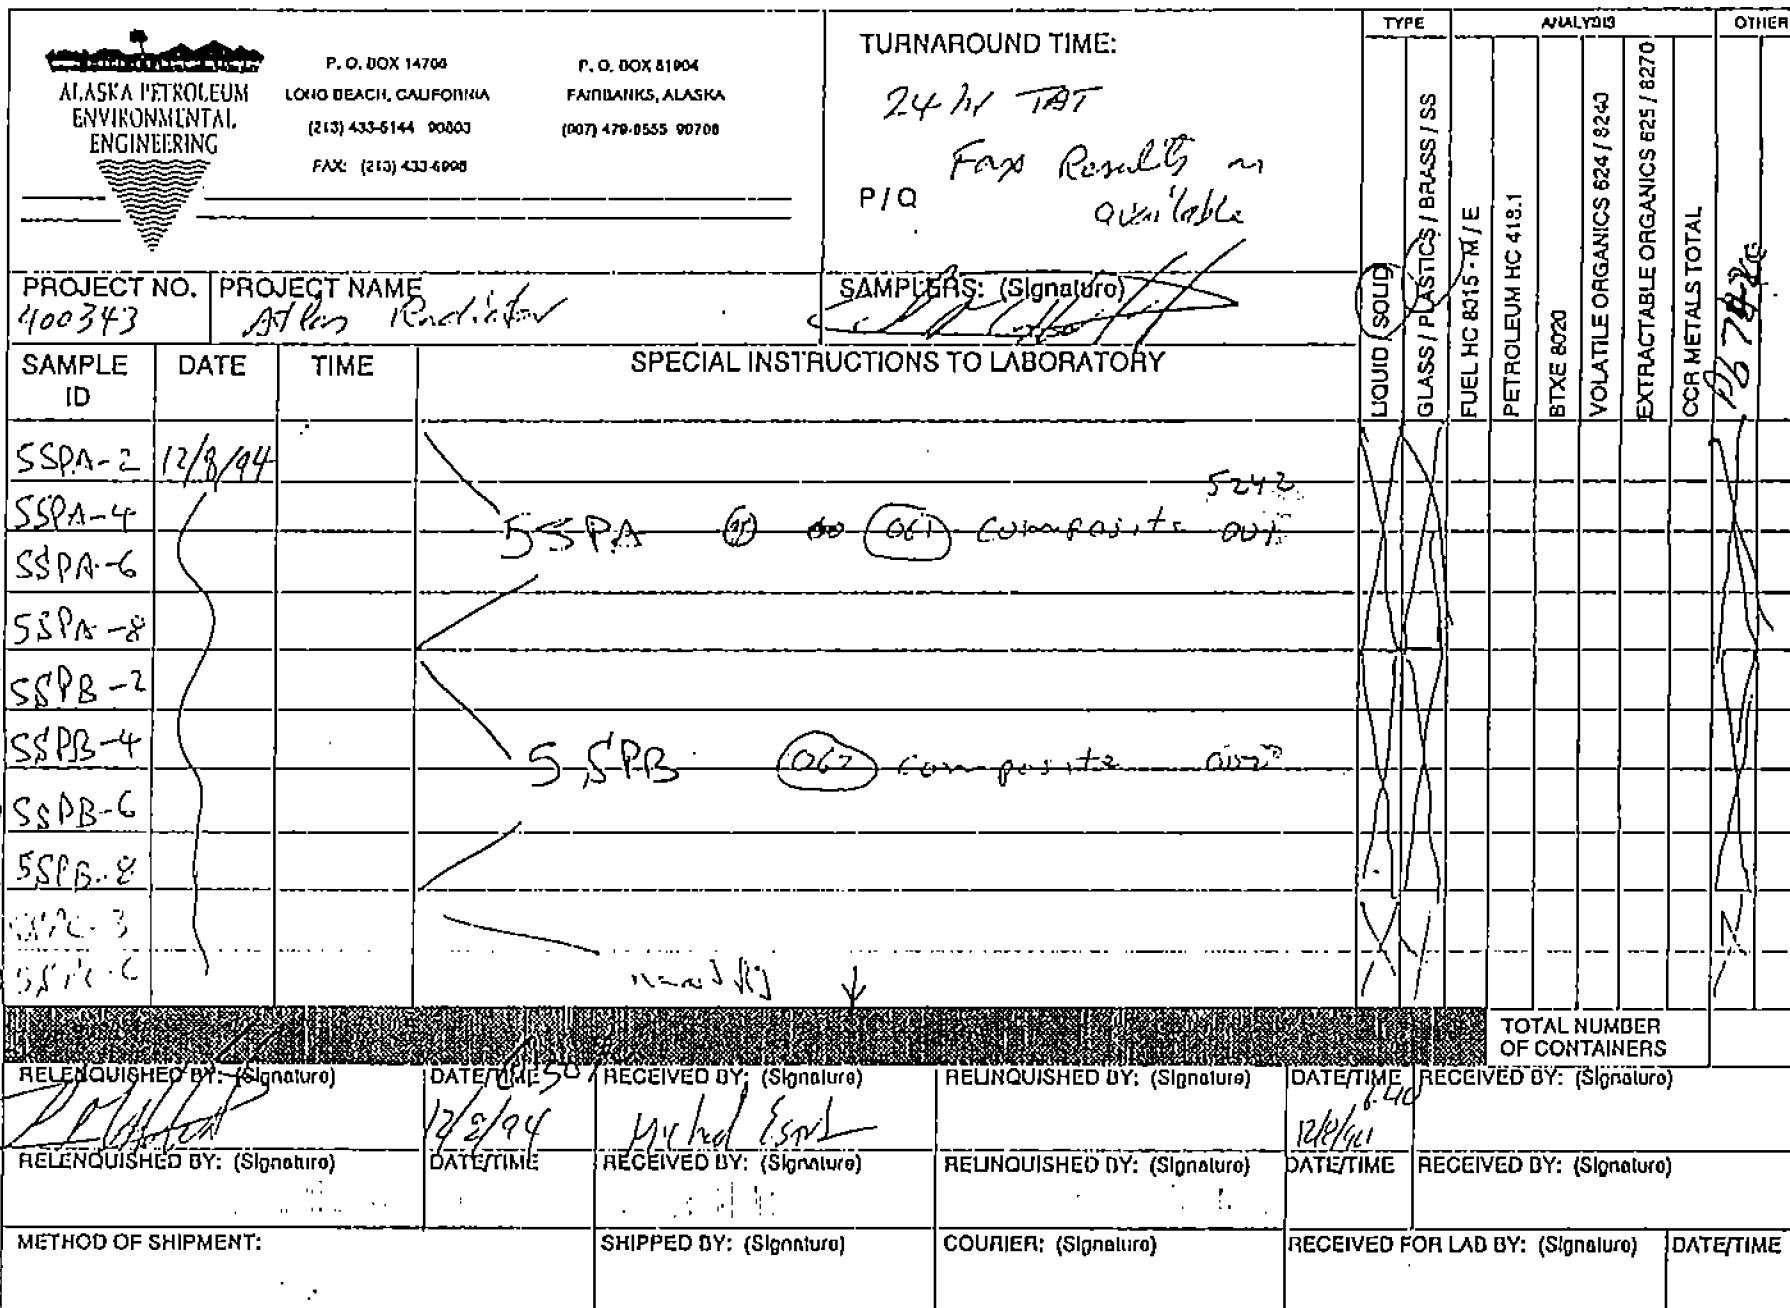 ALASKA PETROLEUM
ENVIRONMENTAL
ENGINEERING
P. O. BOX 14700
LONG BEACH, CALIFORNIA
(213) 433-6144 90803
FAX: (213) 433-6998
P. O. BOX 81904
FAIRBANKS, ALASKA
(907) 479-8555 90708
TURNAROUND TIME:
24 hr TAT
Fax Results as
available
P / Q
TYPE
ANALYSIS
OTHER
LIQUID / SOLID
GLASS / PLASTICS / BRASS / SS
FUEL HC 8015 - M / E
PETROLEUM HC 418.1
BTXE 8020
VOLATILE ORGANICS 624 / 8240
EXTRACTABLE ORGANICS 625 / 8270
CCR METALS TOTAL
Pb
PROJECT NO.
400343
PROJECT NAME
Atlas Radiator
SAMPLERS: (Signature)
SAMPLE
ID
DATE
TIME
SPECIAL INSTRUCTIONS TO LABORATORY
SSPA-2 12/8/94
SSPA-4
SSPA-6
SSPA-8
SSPB-2
SSPB-4
SSPB-6
SSPB-8
5242
SSPA 061 composite
SSPB 062 composite
TOTAL NUMBER
OF CONTAINERS
RELENQUISHED BY: (Signature)
DATE/TIME
12/8/94
RECEIVED BY: (Signature)
RELINQUISHED BY: (Signature)
DATE/TIME
RECEIVED BY: (Signature)
RELENQUISHED BY: (Signature)
DATE/TIME
RECEIVED BY: (Signature)
RELINQUISHED BY: (Signature)
DATE/TIME
RECEIVED BY: (Signature)
METHOD OF SHIPMENT:
SHIPPED BY: (Signature)
COURIER: (Signature)
RECEIVED FOR LAB BY: (Signature)
DATE/TIME